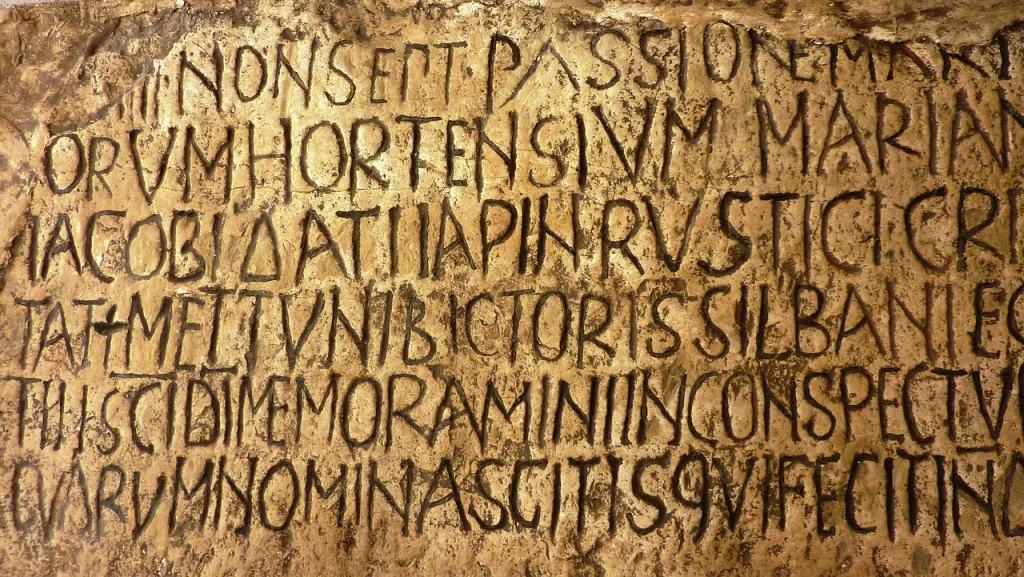 IIII NON SEPT · PASSIONE MARTV
ORVM HORTENSIVM MARIAN
IACOBI ΔATI IAPIN RVSTICI CRI
TAT + METTVNI BICTORIS SILBANI EG
TII SCI DI MEMORAMINI IN CONSPECTV
QVORVM NOMINA SCIT IS QVI FECIT IND